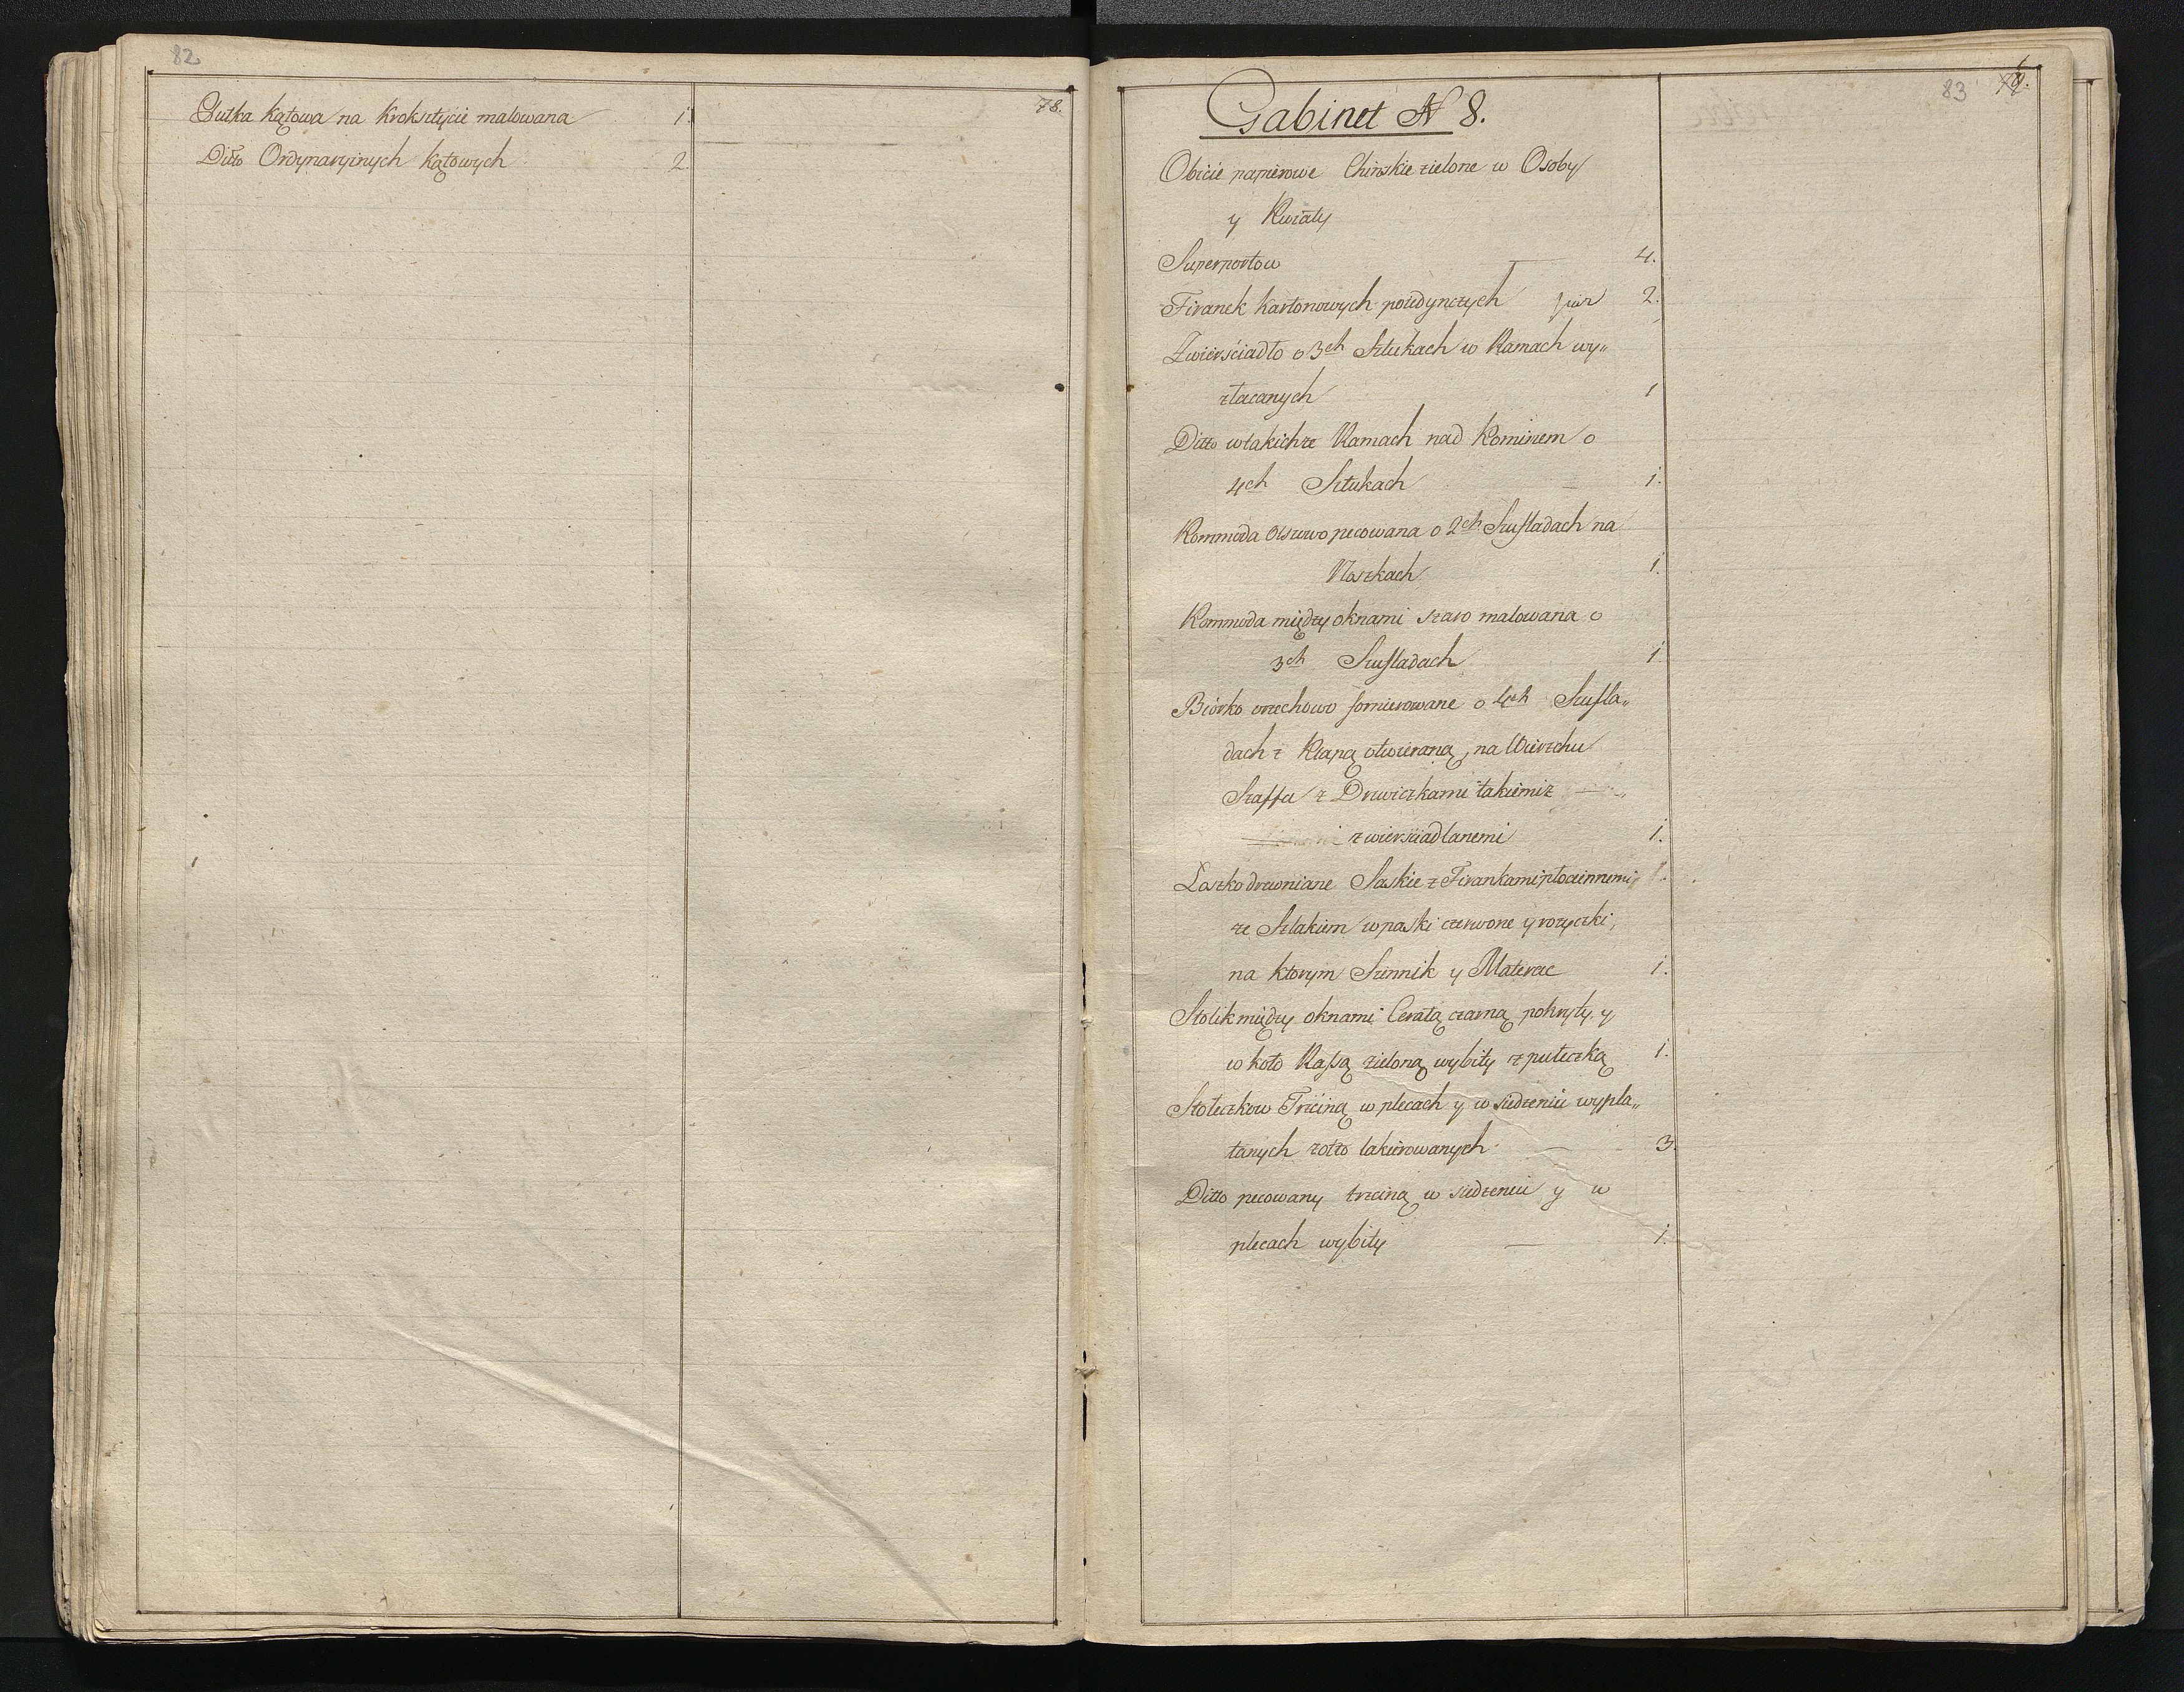 82
78.
Szutka kątowa na Kroksztycie malowana 1.
Ditto Ordynaryinych kątowych 2.
83
79.
Gabinet N 8.
Obicie papierowe Chinskie zielone w Osoby
y Kwiaty
Superportow 4.
Firanek Kartonowych poiedynczych par 2.
Zwierściadło o 3ch Sztukach w Ramach wy„
złacanych 1
Ditto w takichze Ramach nad Kominem o
4ch Sztukach 1.
Kommoda pecowana o 2ch Szufladach na
Noszkach 1.
Kommoda między oknami szaro malowana o
3ch Szufladach 1
Biórko orzechowo fornierowane o 4ch Szufla„
dach z Klapą otwieraną, na Wierzchu
Szaffa z Drwiczkami takiemiz
zwierściadlanemi 1.
Łoszko drewniane Saskie z Firankami płociennemi
ze Szlakiem w paski czerwone y rozyczki,
na ktorym Siennik y Materac 1.
Stolik między oknami Ceratą czarną pokryty y
w koło Rassą zieloną wybity z puteczką 1.
Stoleczkow Trzciną w plecach y w siedzeniu wypla„
tanych zołto lakierowanych 3.
Ditto pecowany trzciną w siedzeniu y w
plecach wybity 1.